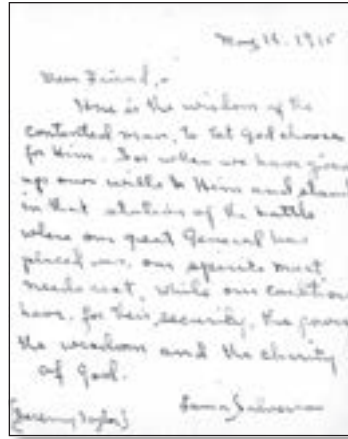 May 16. 1915
Dear Friend,
Here is the wisdom of the
contented man, to let God choose
for Him. For when we have given
up our wills to Him and stand
in that station of the battle
where our great General has
placed us, our spirits must
needs rest, while our conditions
have, for their security, the power
the wisdom and the charity
of God.
[Jeremy Taylor]